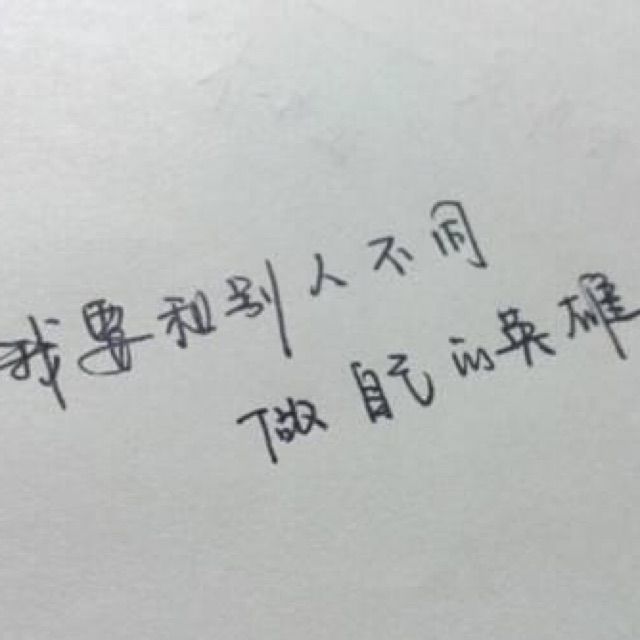 我要和别人不同
做自己的英雄